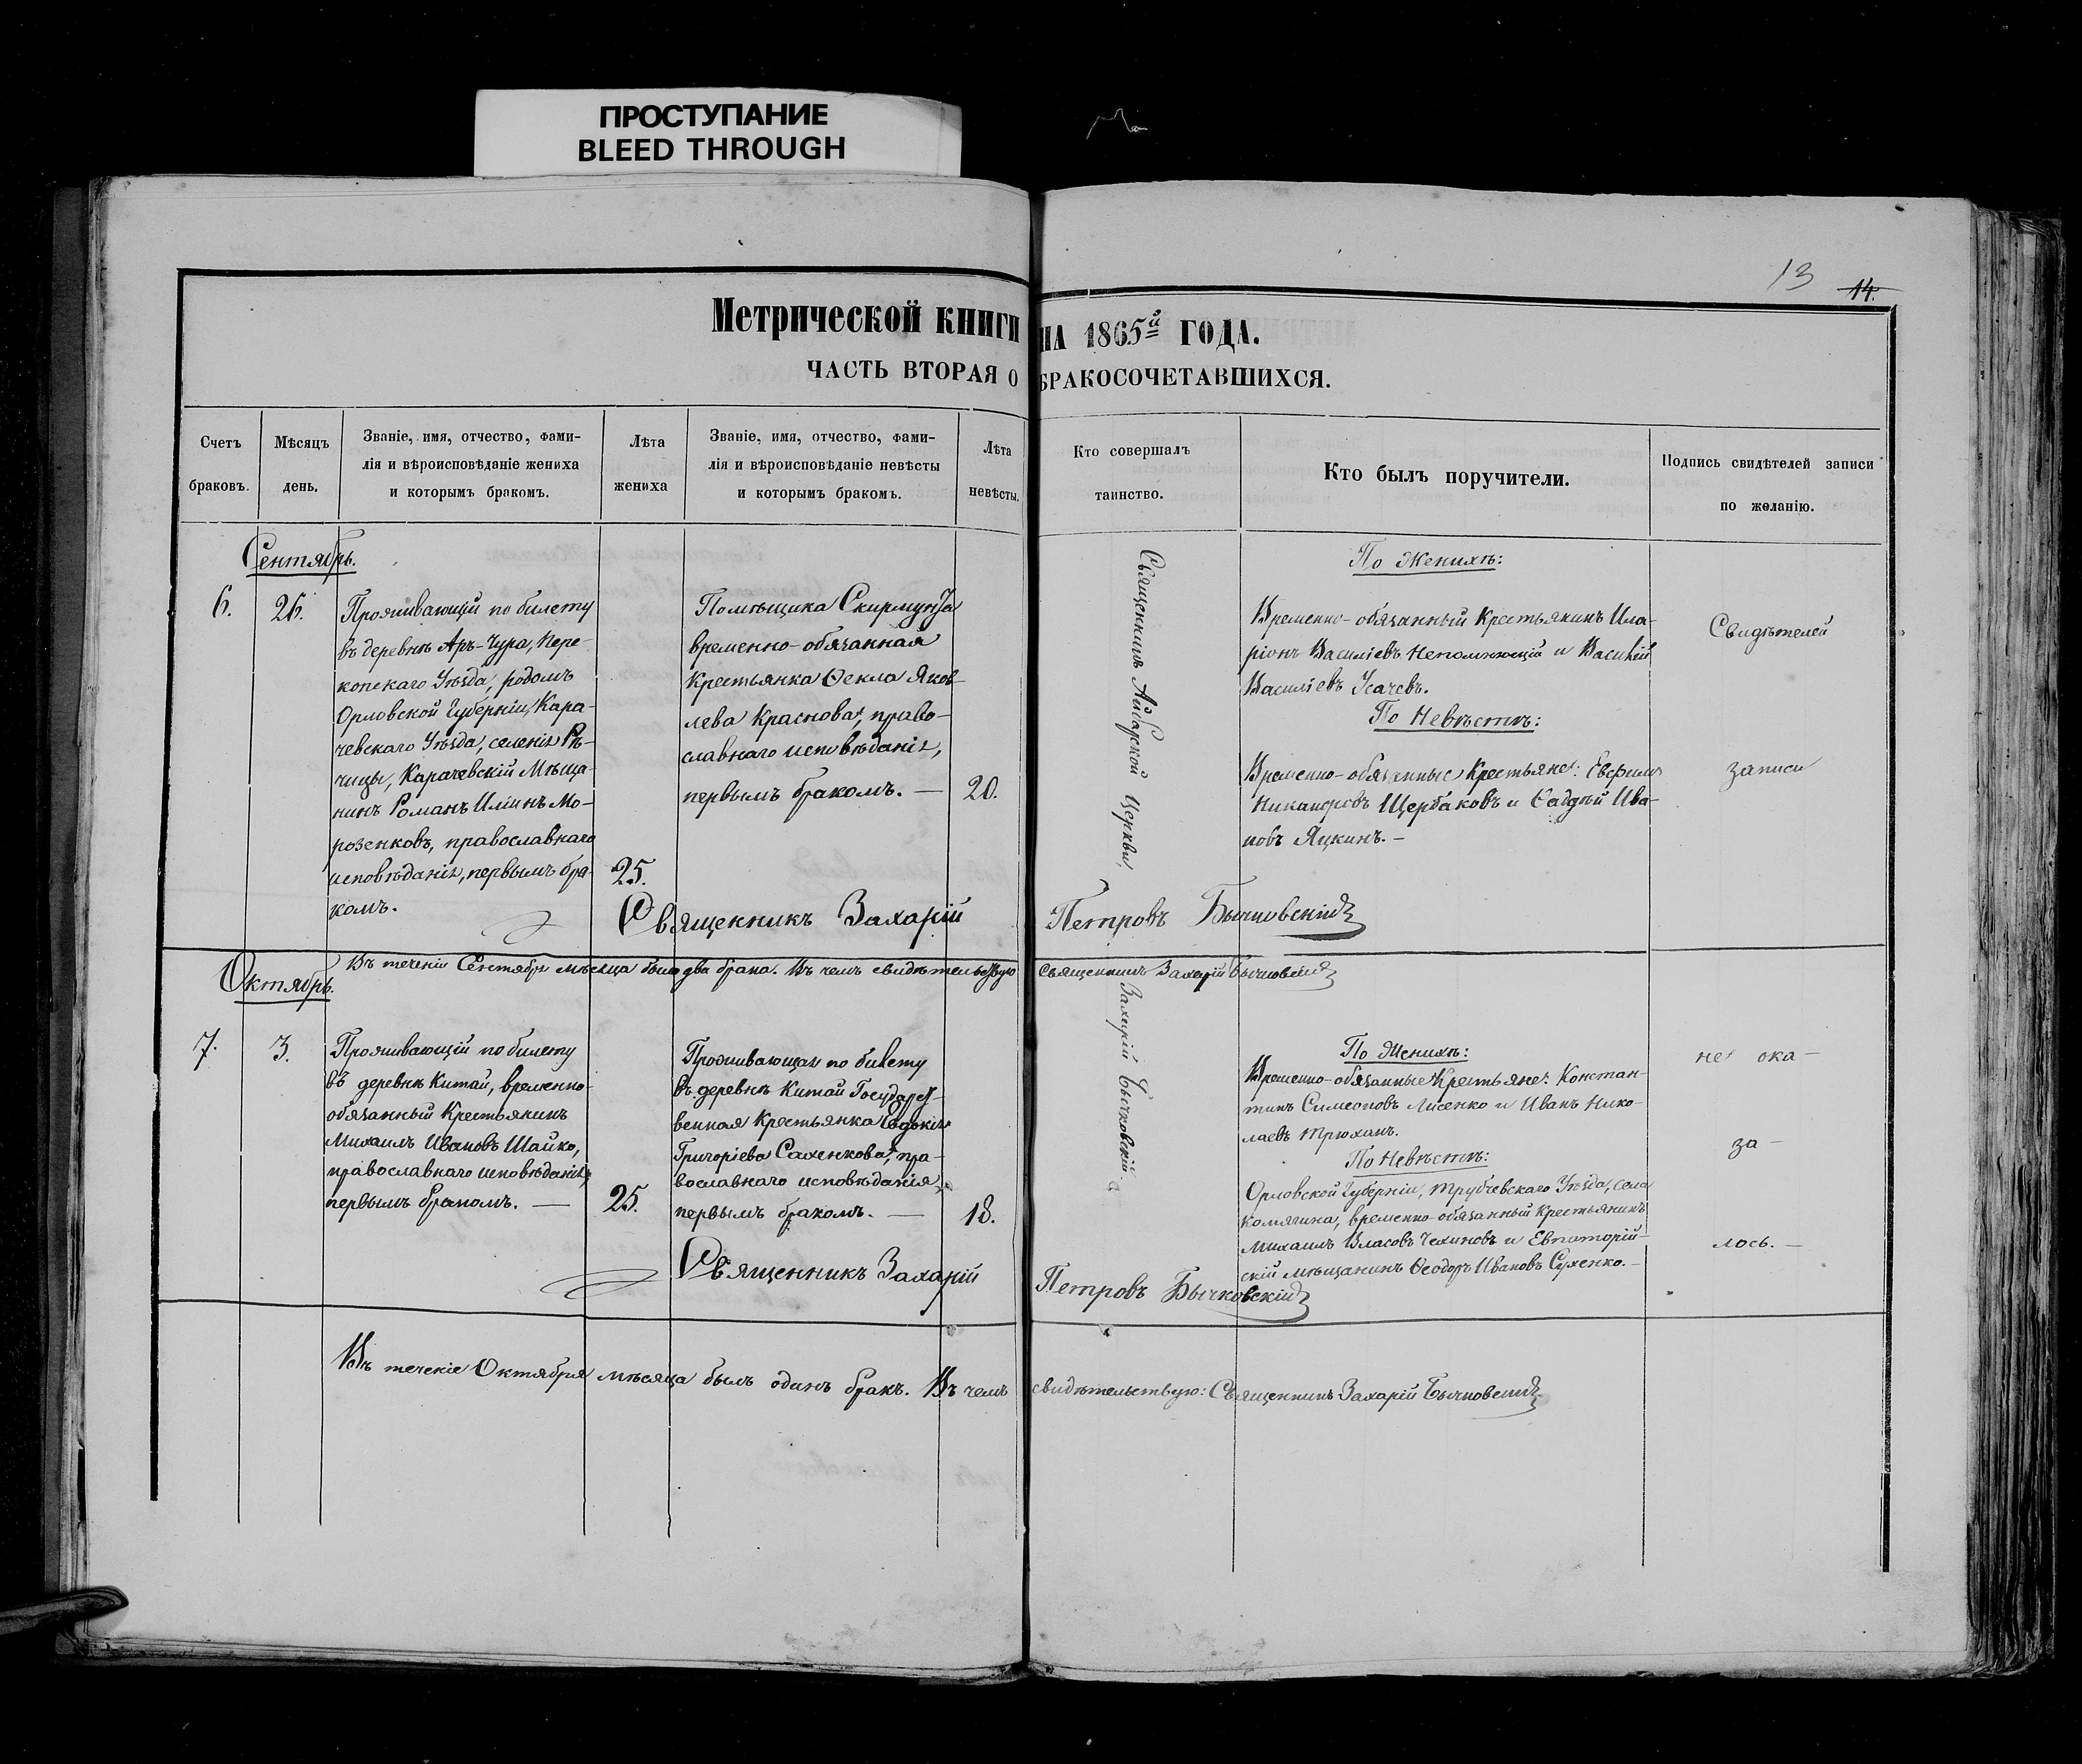 ПРОСТУПАНИЕ
BLEED THROUGH
13 14.
Метрической книги на 1865й ГОДА.
ЧАСТЬ ВТОРАЯ О БРАКОСОЧЕТАВШИХСЯ.
Счетъ
браковъ.
Мѣсяцъ
день.
Званіе, имя, отчество, фами-
лія и вѣроисповѣданіе жениха
и которымъ бракомъ.
Лѣта
жениха
Званіе, имя, отчество, фами-
лія и вѣроисповѣданіе невѣсты
и которымъ бракомъ.
Лѣта
невѣсты.
Кто совершалъ
таинство.
Кто былъ поручители.
Подпись свидѣтелей записи
по желанію.
Сентябрь.
6.
26.
Проживающій по билету
въ деревнѣ Аръ-Чура, Пере-
копскаго Уѣзда, родомъ
Орловской Губерніи, Кара-
чевскаго Уѣзда, селенія Рѣ-
чицы, Карачевскій Мѣща-
нинъ Романъ Иліинъ Мо-
розенковъ, православнаго
исповѣданія, первымъ бра-
комъ.
25.
Помѣщика Скирмунта
временно-обязанная
Крестьянка Ѳекла Яков-
лева Краснова, право-
славнаго исповѣданія,
первымъ бракомъ. —
20.
Священникъ Айбарской Церкви,
Захарій Бычковскій.
По Женихѣ:
Временно-обязанный Крестьянинъ Ила-
ріонъ Василіевъ Непомнющій и Василій
Василіевъ Усачевъ.
По Невѣстѣ:
Временно-обязанные Крестьяне: Евфимъ
Никаноровъ Щербаковъ и Фаддѣй Ива-
новъ Яцкинъ. —
Свидѣтелей
записи
Священникъ Захарій Петровъ Бычковскій
Въ теченіи Сентября мѣсяца было два брака. Въ чемъ свидѣтельствую Священникъ Захарій Бычковскій
Октябрь.
7.
3.
Проживающій по билету
въ деревнѣ Китай, временно-
обязанный Крестьянинъ
Михаилъ Ивановъ Шайко,
православнаго исповѣданія,
первымъ бракомъ. —
25.
Проживающая по билету
въ деревнѣ Китай Государст-
венная Крестьянка Евдокія
Григоріева Сахенкова, пра-
вославнаго исповѣданія,
первымъ бракомъ. —
18.
По Женихѣ:
Временно-обязанные Крестьяне: Констан-
тинъ Симеоновъ Лисенко и Иванъ Нико-
лаевъ Трюханъ.
По Невѣстѣ:
Орловской Губерніи, Трубчевскаго Уѣзда, села
Комягина, временно-обязанный Крестьянинъ
Михаилъ Власовъ Чехиновъ и Евпаторій-
скій мѣщанинъ Ѳеодоръ Ивановъ Сухенко. —
не ока-
за-
лось. —
Священникъ Захарій Петровъ Бычковскій
Въ теченіе Октября мѣсяца былъ одинъ бракъ. Въ чемъ свидѣтельствую: Священникъ Захарій Бычковскій